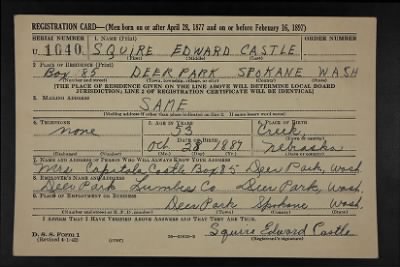 REGISTRATION CARD—(Men born on or after April 28, 1877 and on or before February 16, 1897)
SERIAL NUMBER 1. NAME (Print) ORDER NUMBER
U. 1040 SQUIRE EDWARD CASTLE
(First) (Middle) (Last)
2. PLACE OF RESIDENCE (Print)
Box 85 DEER PARK SPOKANE WASH
(Number and street) (Town, township, village, or city) (County) (State)
[THE PLACE OF RESIDENCE GIVEN ON THE LINE ABOVE WILL DETERMINE LOCAL BOARD
JURISDICTION; LINE 2 OF REGISTRATION CERTIFICATE WILL BE IDENTICAL]
3. MAILING ADDRESS
SAME
[Mailing address if other than place indicated on line 2. If same insert word same]
4. TELEPHONE 5. AGE IN YEARS 6. PLACE OF BIRTH
none 53 Creek
DATE OF BIRTH (Town or county)
Oct 28 1887 Nebraska
(Exchange) (Number) (Mo.) (Day) (Yr.) (State or country)
7. NAME AND ADDRESS OF PERSON WHO WILL ALWAYS KNOW YOUR ADDRESS
Mrs. Capitola Castle Box 85 Deer Park, Wash.
8. EMPLOYER'S NAME AND ADDRESS
Deer Park Lumber Co. Deer Park, Wash.
9. PLACE OF EMPLOYMENT OR BUSINESS
Deer Park Spokane Wash.
(Number and street or R. F. D. number) (Town) (County) (State)
I AFFIRM THAT I HAVE VERIFIED ABOVE ANSWERS AND THAT THEY ARE TRUE.
Squire Edward Castle
D. S. S. Form 1
(Revised 4-1-42) (over) (Registrant's signature)